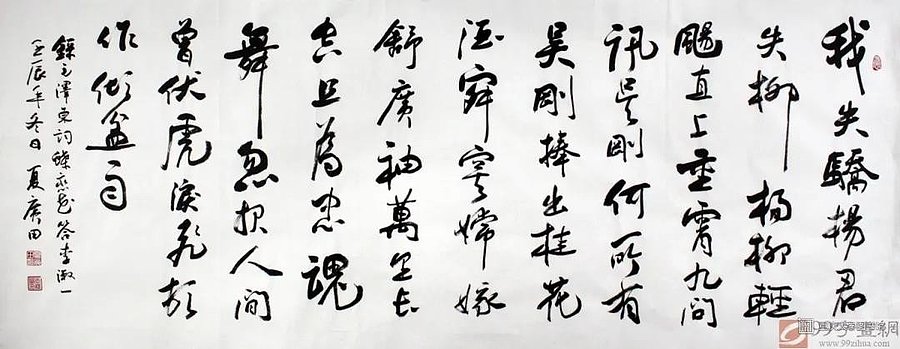 我失驕楊君
失柳楊柳輕
颺直上重霄九問
訊吳剛何所有
吳剛捧出桂花
酒寂寞嫦娥
舒廣袖萬里長
空且為忠魂
舞忽報人間
曾伏虎淚飛頓
作傾盆雨
錄毛澤東詞蝶戀花答李淑一
壬辰年冬日夏廣田
www.99zihua.com